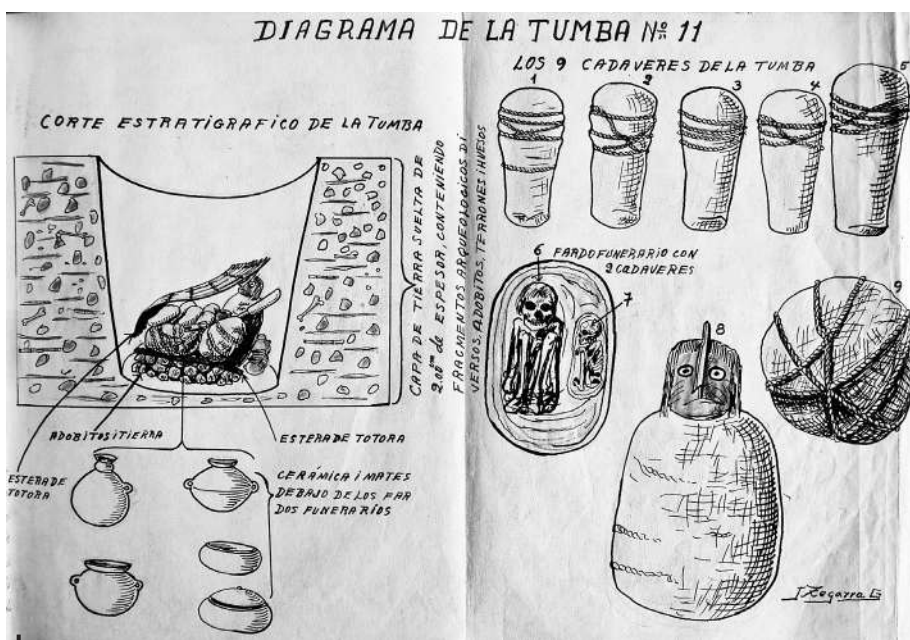 DIAGRAMA DE LA TUMBA Nº 11
CORTE ESTRATIGRAFICO DE LA TUMBA
CAPA DE TIERRA SUELTA DE
2.00 m de ESPESOR, CONTENIENDO
FRAGMENTOS ARQUEOLOGICOS DI
VERSOS, ADOBITOS, TERRONES I HUESOS
ADOBITOS I TIERRA
ESTERA DE TOTORA
ESTERA DE
TOTORA
CERÁMICA I MATES
DEBAJO DE LOS FAR
DOS FUNERARIOS
LOS 9 CADAVERES DE LA TUMBA
1
2
3
4
5
6
FARDO FUNERARIO CON
2 CADAVERES
7
8
9
J Zegarra G